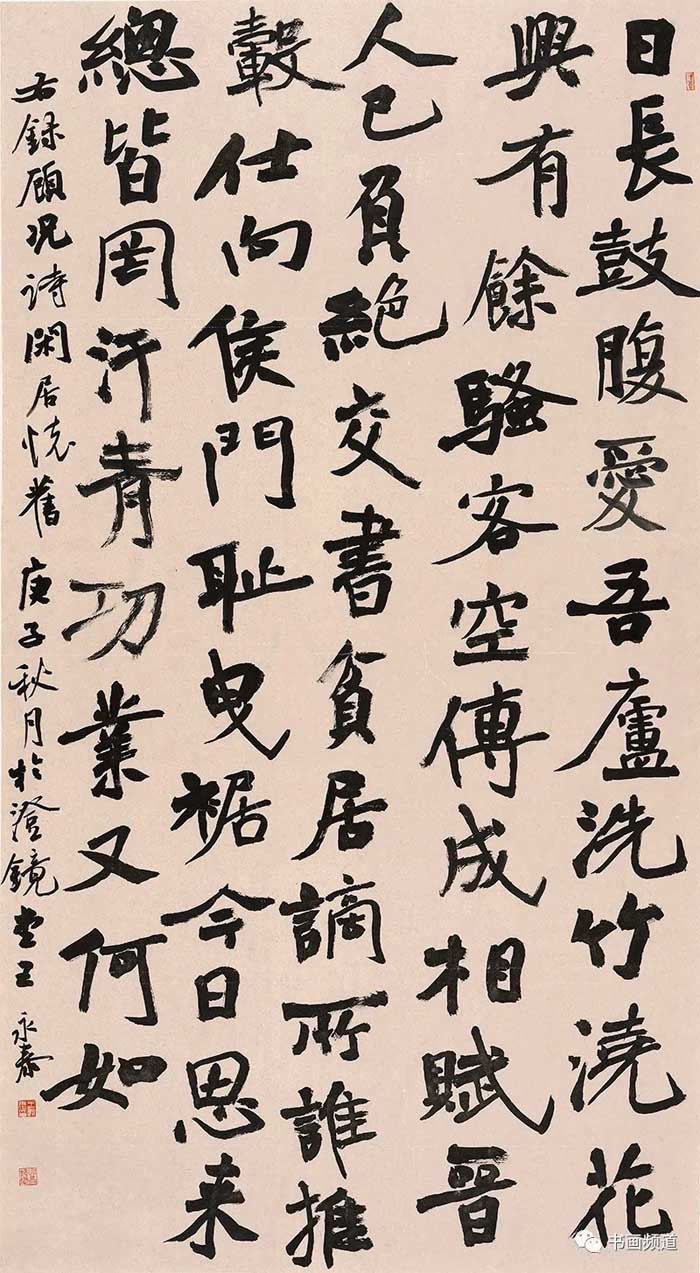 日長鼓腹愛吾廬洗竹澆花
興有餘騷客空傳成相賦晉
人已負絶交書貧居謫所誰推
轂仕向侯門耻曳裾今日思来
總皆罔汗青功業又何如
右録顧况詩閑居懷舊 庚子秋月於澄鏡堂王永泰
书画频道